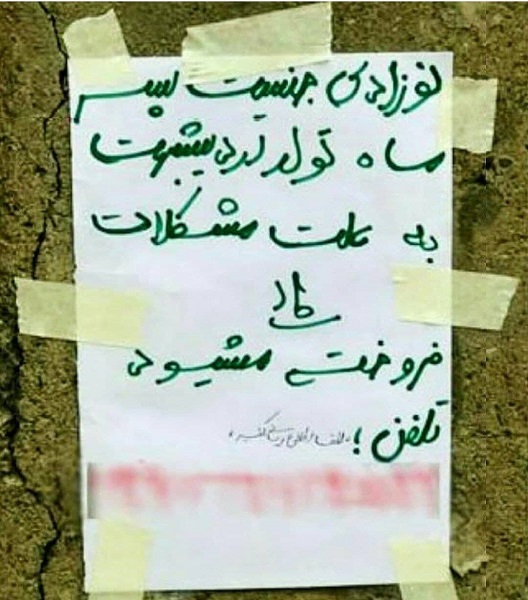 نوزادی جنسیت پسر
ماه تولد اردیبهشت
به علت مشکلات
فروخته میشود
تلفن ؛ لطفا اطلاع رسانی کنید